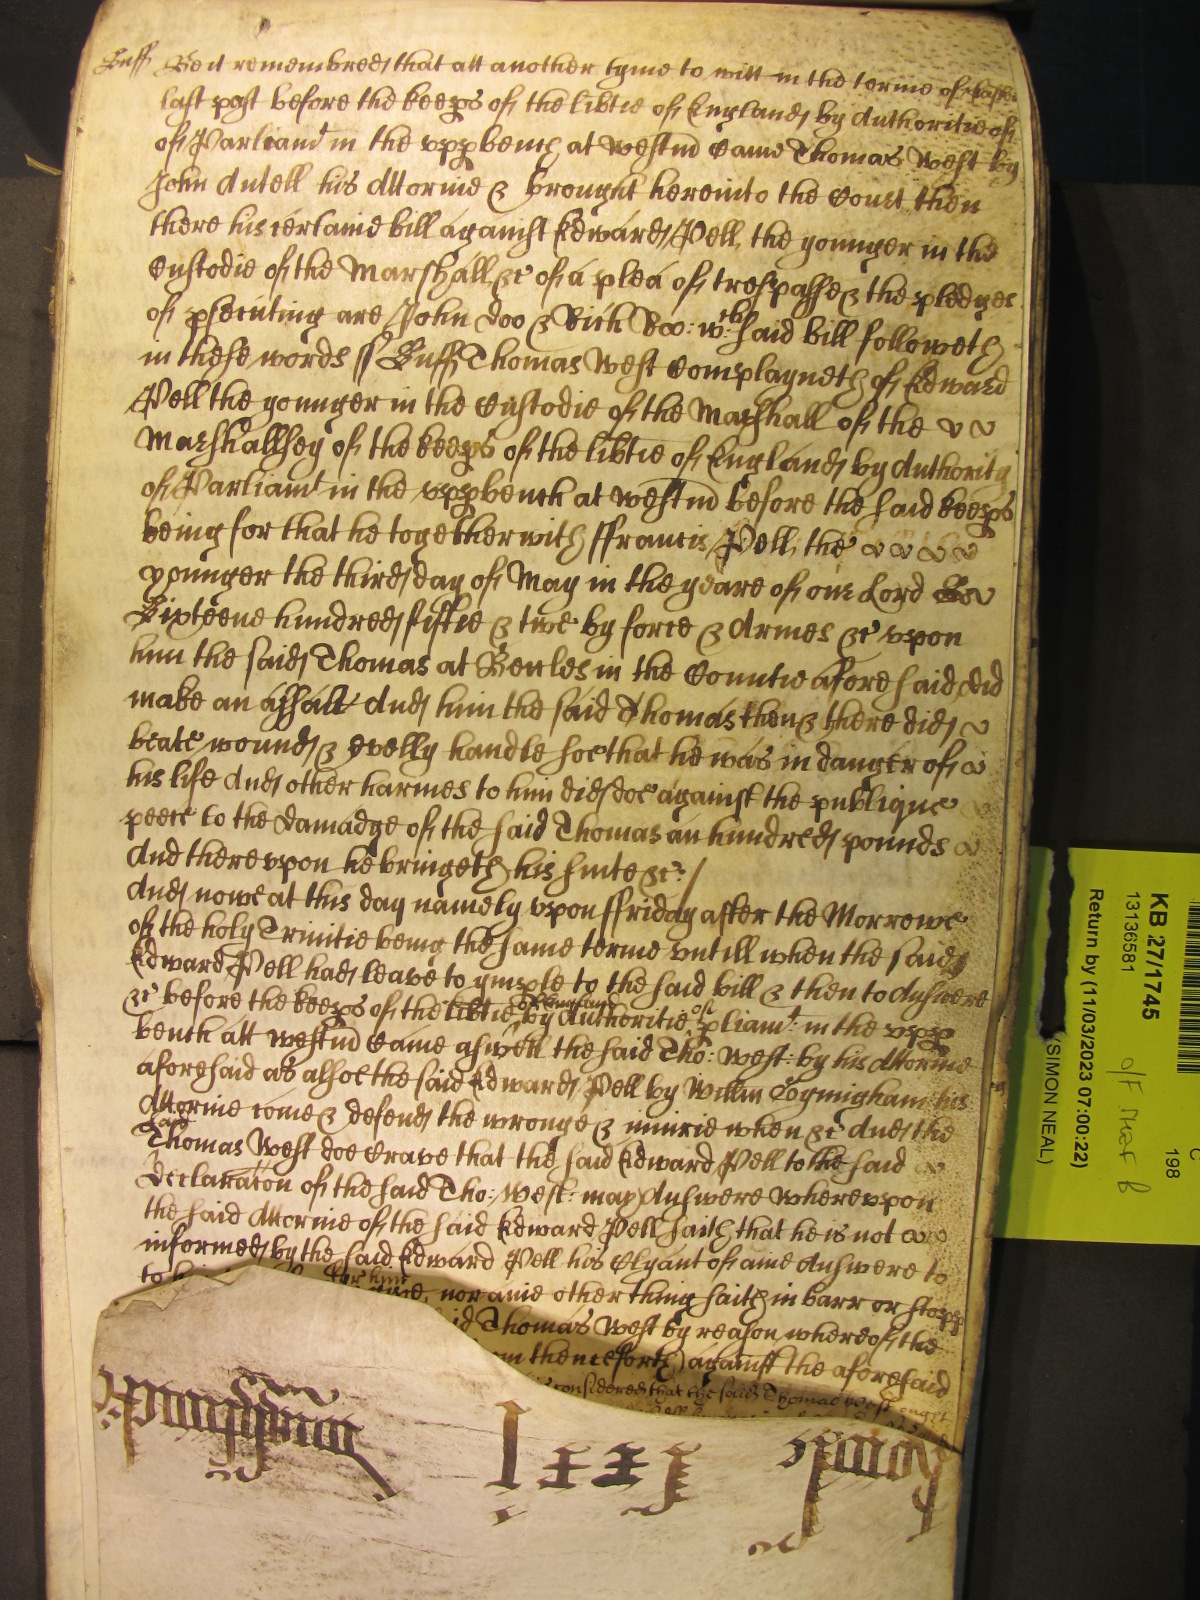 Suff Be it remembred that att another tyme to witt in the terme of Easter
last past before the keeps of the libtie of England by Authoritie of
of Parliamt in the uppbench at Westm Came Thomas West by
John Antell his Attornie & brought here into the Court then
there his certaine bill against Edward Pell the younger in the
Custodie of the Marshall &c of a plea of trespasse & the pledges
of psecuting are John doo & Rich Roo: wch said bill followeth
in these words ss Suff Thomas West Complayneth of Edward
Pell the younger in the Custodie of the Marshall of the
Marshallsey of the keeps of the libtie of England by Authority
of Parliamt in the uppbench at Westm before the said keeps
being for that he together with ffrancis Pell the
younger the third day of May in the yeare of our Lord
Sixteene hundred fiftie & two by force & Armes &c upon
him the said Thomas at Beccles in the Countie aforesaid did
make an assalt And him the said Thomas then & there did
beate wound & evelly handle soe that he was in danger of
his life And other harmes to him did doe against the publique
peece to the damadge of the said Thomas an hundred pounds
And thereupon he bringeth his suite &c:
And nowe at this day namely upon ffriday after the Morrowe
of the holy Trinitie being the same terme untill when the said
Edward Pell had leave to to the said bill & then to Answere
&c before the keeps of the libtie of England by Authoritie of pliamt: in the upp
bench att Westm Came aswell the said Tho: West: by his Attornie
aforesaid as alsoe the said Edward Pell by Willm his
Attornie come & defend the wronge & iniurie when &c And the
said Thomas West doe Crave that the said Edward Pell to the said
declaracon of the said Tho: West: may Answere whereupon
the said Attornie of the said Edward Pell saith that he is not
informed by the said Edward Pell his Clyant of anie Answere to
to for him nor anie other thing saith in barr or stopp
Thomas West by reason whereof the
thenceforth against the aforesaid
considered that the said Thomas West ought
KB 27/1745
13136581
Return by (11/03/2023 07:00:22)
(SIMON NEAL)
C
198